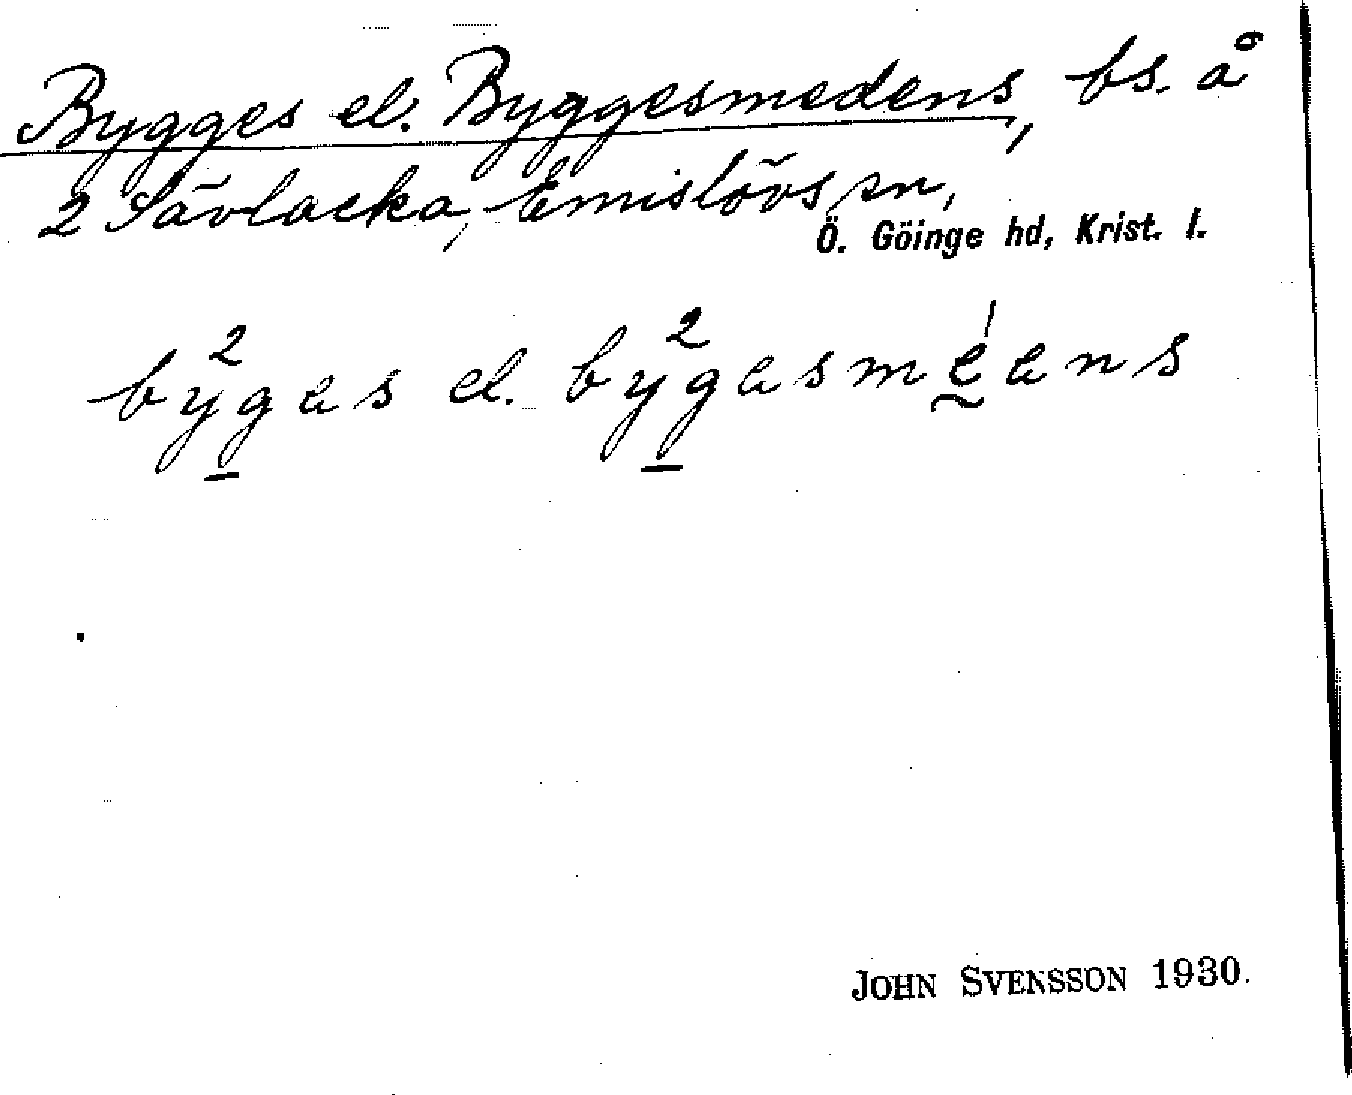 Bygges el. Byggesmedens, bs. å
2 Sävlacka, Emislövs sn,
Ö. Göinge hd, Krist. l.
by²gas el. by²gasmeans
JOHN SVENSSON 1930.